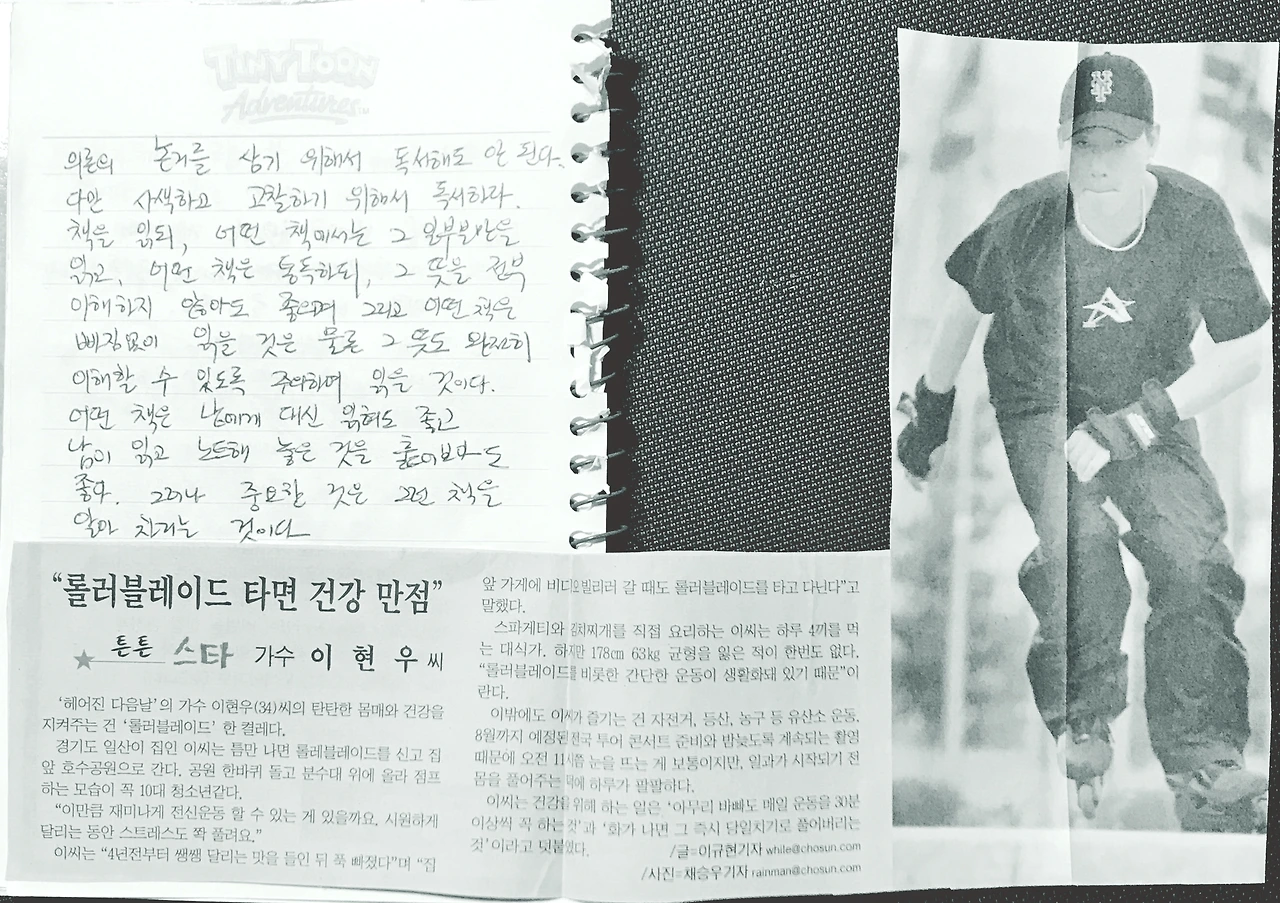 TINY TOON
Adventures
의론의 논거를 삼기 위해서 독서해도 안 된다.
다만 사색하고 고찰하기 위해서 독서하라.
책을 읽되, 어떤 책에서는 그 일부분만을
읽고, 어떤 책은 통독하되, 그 뜻을 전부
이해하지 않아도 좋으며 그리고 어떤 책은
빠짐없이 읽을 것은 물론 그 뜻도 완전히
이해할 수 있도록 주의하며 읽을 것이다.
어떤 책은 남에게 대신 읽혀도 좋고
남이 읽고 노트해 놓은 것을 훑어보아도
좋다. 그러나 중요한 것은 그런 책을
알아 차리는 것이다
“롤러블레이드 타면 건강 만점”
튼튼 스타 가수 이현우씨
‘헤어진 다음날’의 가수 이현우(34)씨의 탄탄한 몸매와 건강을
지켜주는 건 ‘롤러블레이드’ 한 켤레다.
경기도 일산이 집인 이씨는 틈만 나면 롤레블레이드를 신고 집
앞 호수공원으로 간다. 공원 한바퀴 돌고 분수대 위에 올라 점프
하는 모습이 꼭 10대 청소년같다.
“이만큼 재미나게 전신운동 할 수 있는 게 있을까요. 시원하게
달리는 동안 스트레스도 쫙 풀려요.”
이씨는 “4년전부터 쌩쌩 달리는 맛을 들인 뒤 푹 빠졌다”며 “집
앞 가게에 비디오 빌리러 갈 때도 롤러블레이드를 타고 다닌다”고
말했다.
스파게티와 김치찌개를 직접 요리하는 이씨는 하루 4끼를 먹
는 대식가. 하지만 178cm 63kg 균형을 잃은 적이 한번도 없다.
“롤러블레이드를 비롯한 간단한 운동이 생활화돼 있기 때문”이
란다.
이밖에도 이씨가 즐기는 건 자전거, 등산, 농구 등 유산소 운동.
8월까지 예정된 전국 투어 콘서트 준비와 밤늦도록 계속되는 촬영
때문에 오전 11시쯤 눈을 뜨는 게 보통이지만, 일과가 시작되기 전
몸을 풀어주는 덕에 하루가 팔팔하다.
이씨는 건강을 위해 하는 일은 ‘아무리 바빠도 매일 운동을 30분
이상씩 꼭 하는 것’과 ‘화가 나면 그 즉시 당일치기로 풀어버리는
것’이라고 덧붙였다.
/글=이규현기자 while@chosun.com
/사진=채승우기자 rainman@chosun.com
NY
A